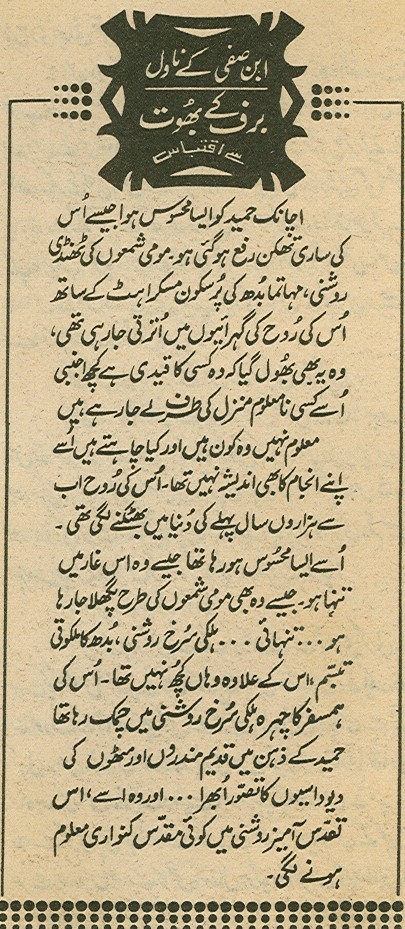 ابن صفی کے ناول
برف کے بھُوت
سے اقتباس
اچانک حمید کو ایسا محسُوس ہوا جیسے اُس
کی ساری تھکن رفع ہو گئی ہو۔ مومی شمعوں کی ٹھنڈی
روشنی، مہاتما بُدھ کی پُرسکون مسکراہٹ کے ساتھ
اُس کی رُوح کی گہرائیوں میں اُترتی جا رہی تھی،
وہ یہ بھی بھُول گیا کہ وہ کسی کا قیدی ہے کچھ اجنبی
اُسے کسی نامعلوم منزل کی طرف لے جا رہے ہیں
معلوم نہیں وہ کون ہیں اور کیا چاہتے ہیں اُسے
اپنے انجام کا بھی اندیشہ نہیں تھا۔ اُس کی رُوح اب
سے ہزاروں سال پہلے کی دُنیا میں بھٹکنے لگی تھی۔
اُسے ایسا محسُوس ہو رہا تھا جیسے وہ اس غار میں
تنہا ہو۔ جیسے وہ بھی مومی شمعوں کی طرح پگھلا جا رہا
ہو ... تنہائی ... ہلکی سُرخ روشنی، بُدھ کا ملکوتی
تبسّم، اس کے علاوہ وہاں کچھ نہیں تھا۔ اُس کی
ہمسفر کا چہرہ ہلکی سُرخ روشنی میں چمک رہا تھا
حمید کے ذہن میں قدیم مندروں اور مٹھوں کی
دیوداسیوں کا تصّور اُبھرا ... اور وہ اسے، اس
تقدّس آمیز روشنی میں کوئی مقدّس کنواری معلوم
ہونے لگی۔